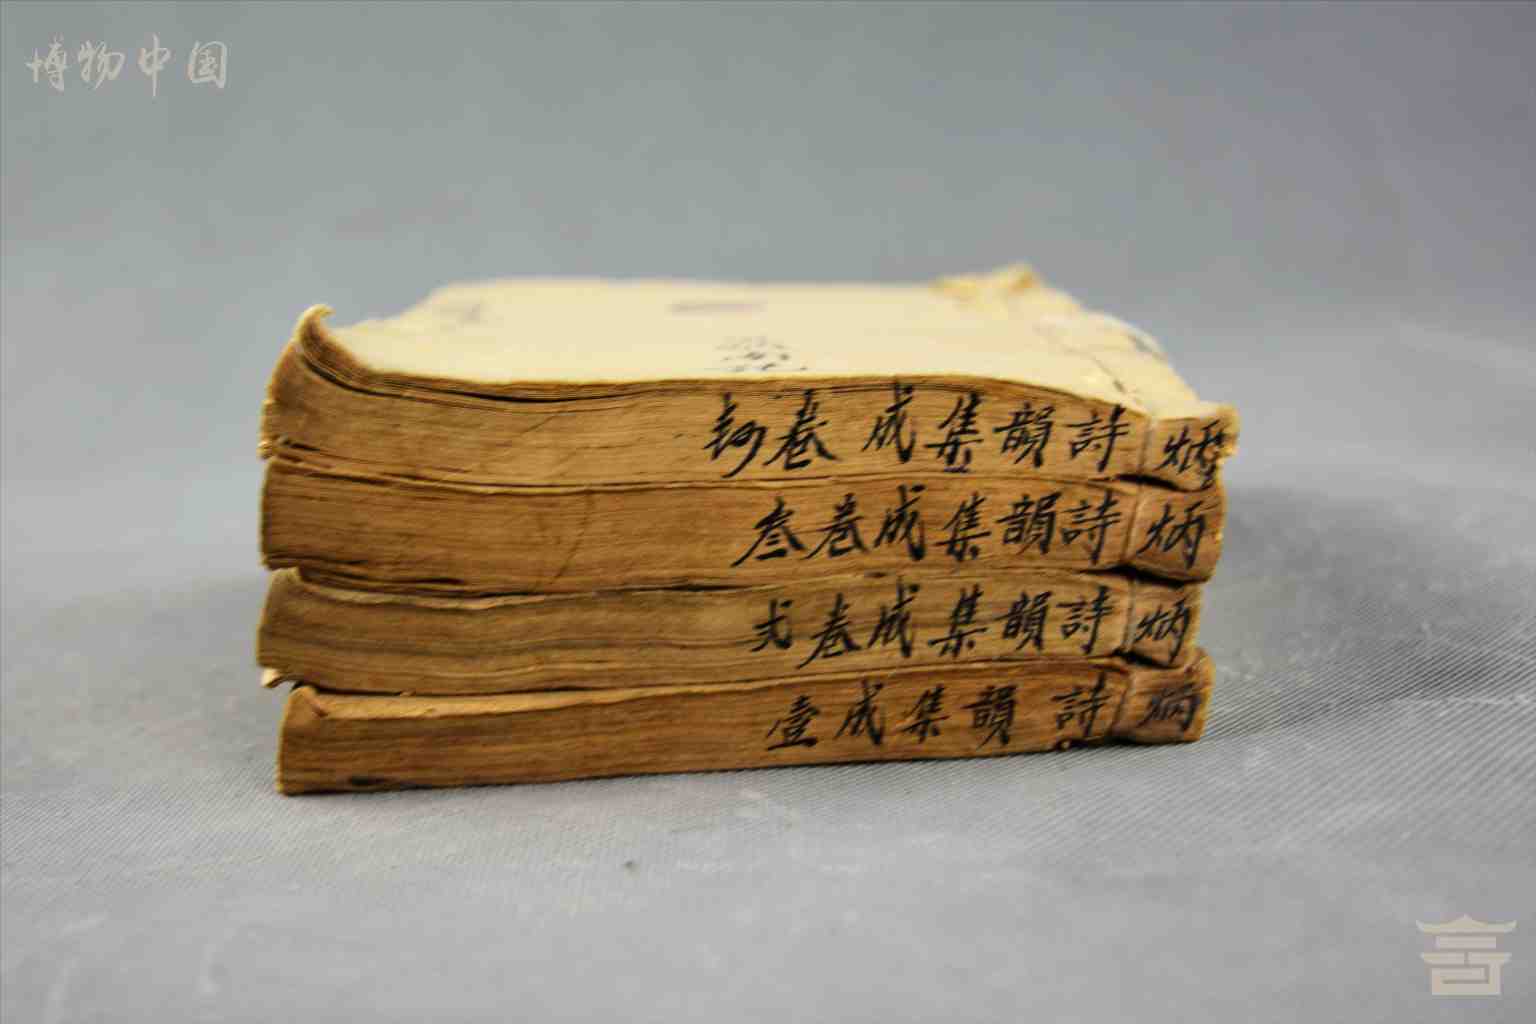 博物中国
炳 詩韻集成卷
炳 詩韻集成卷叁
炳 詩韻集成卷弍
炳 詩韻集成壹